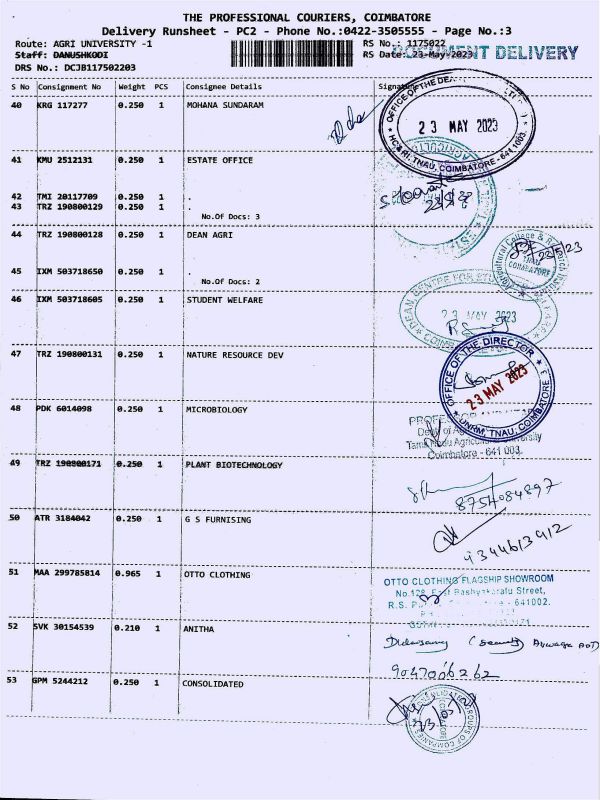 THE PROFESSIONAL COURIERS, COIMBATORE
Delivery Runsheet - PC2 - Phone No.:0422-3505555 - Page No.:3
Route: AGRI UNIVERSITY -1 RS No.: 1175022
Staff: DANUSHKODI RS Date: 23-May-2023 DOCUMENT DELIVERY
DRS No.: DCJB117502203
S No Consignment No Weight PCS Consignee Details Signature
40 KRG 117277 0.250 1 MOHANA SUNDARAM
OFFICE OF THE DEAN
23 MAY 2023
HC & RI, TNAU, COIMBATORE - 641 003.
41 KMU 2512131 0.250 1 ESTATE OFFICE
42 TMI 20117709 0.250 1 .
43 TRZ 190800129 0.250 1 .
No.Of Docs: 3
44 TRZ 190800128 0.250 1 DEAN AGRI
23/5/23
Agricultural College & Research
TNAU
COIMBATORE
45 IXM 503718650 0.250 1 .
No.Of Docs: 2
46 IXM 503718605 0.250 1 STUDENT WELFARE
DEAN, CENTRE FOR
23 MAY 2023
47 TRZ 190800131 0.250 1 NATURE RESOURCE DEV
OFFICE OF THE DIRECTOR
23 MAY 2023
NRM, TNAU, COIMBATORE
48 PDK 6014098 0.250 1 MICROBIOLOGY
Tamil Nadu Agricultural University
Coimbatore - 641 003.
49 TRZ 190800171 0.250 1 PLANT BIOTECHNOLOGY
8754084897
50 ATR 3184042 0.250 1 G S FURNISING
9344613912
51 MAA 299785814 0.965 1 OTTO CLOTHING
OTTO CLOTHING FLAGSHIP SHOWROOM
No.128, East Bashyakaralu Street,
R.S. - 641002.
52 SVK 30154539 0.210 1 ANITHA
(Security)
9047006262
53 GPM 5244212 0.250 1 CONSOLIDATED
CONSOLIDATED
GROUPS OF COMPANIES
COIMBATORE